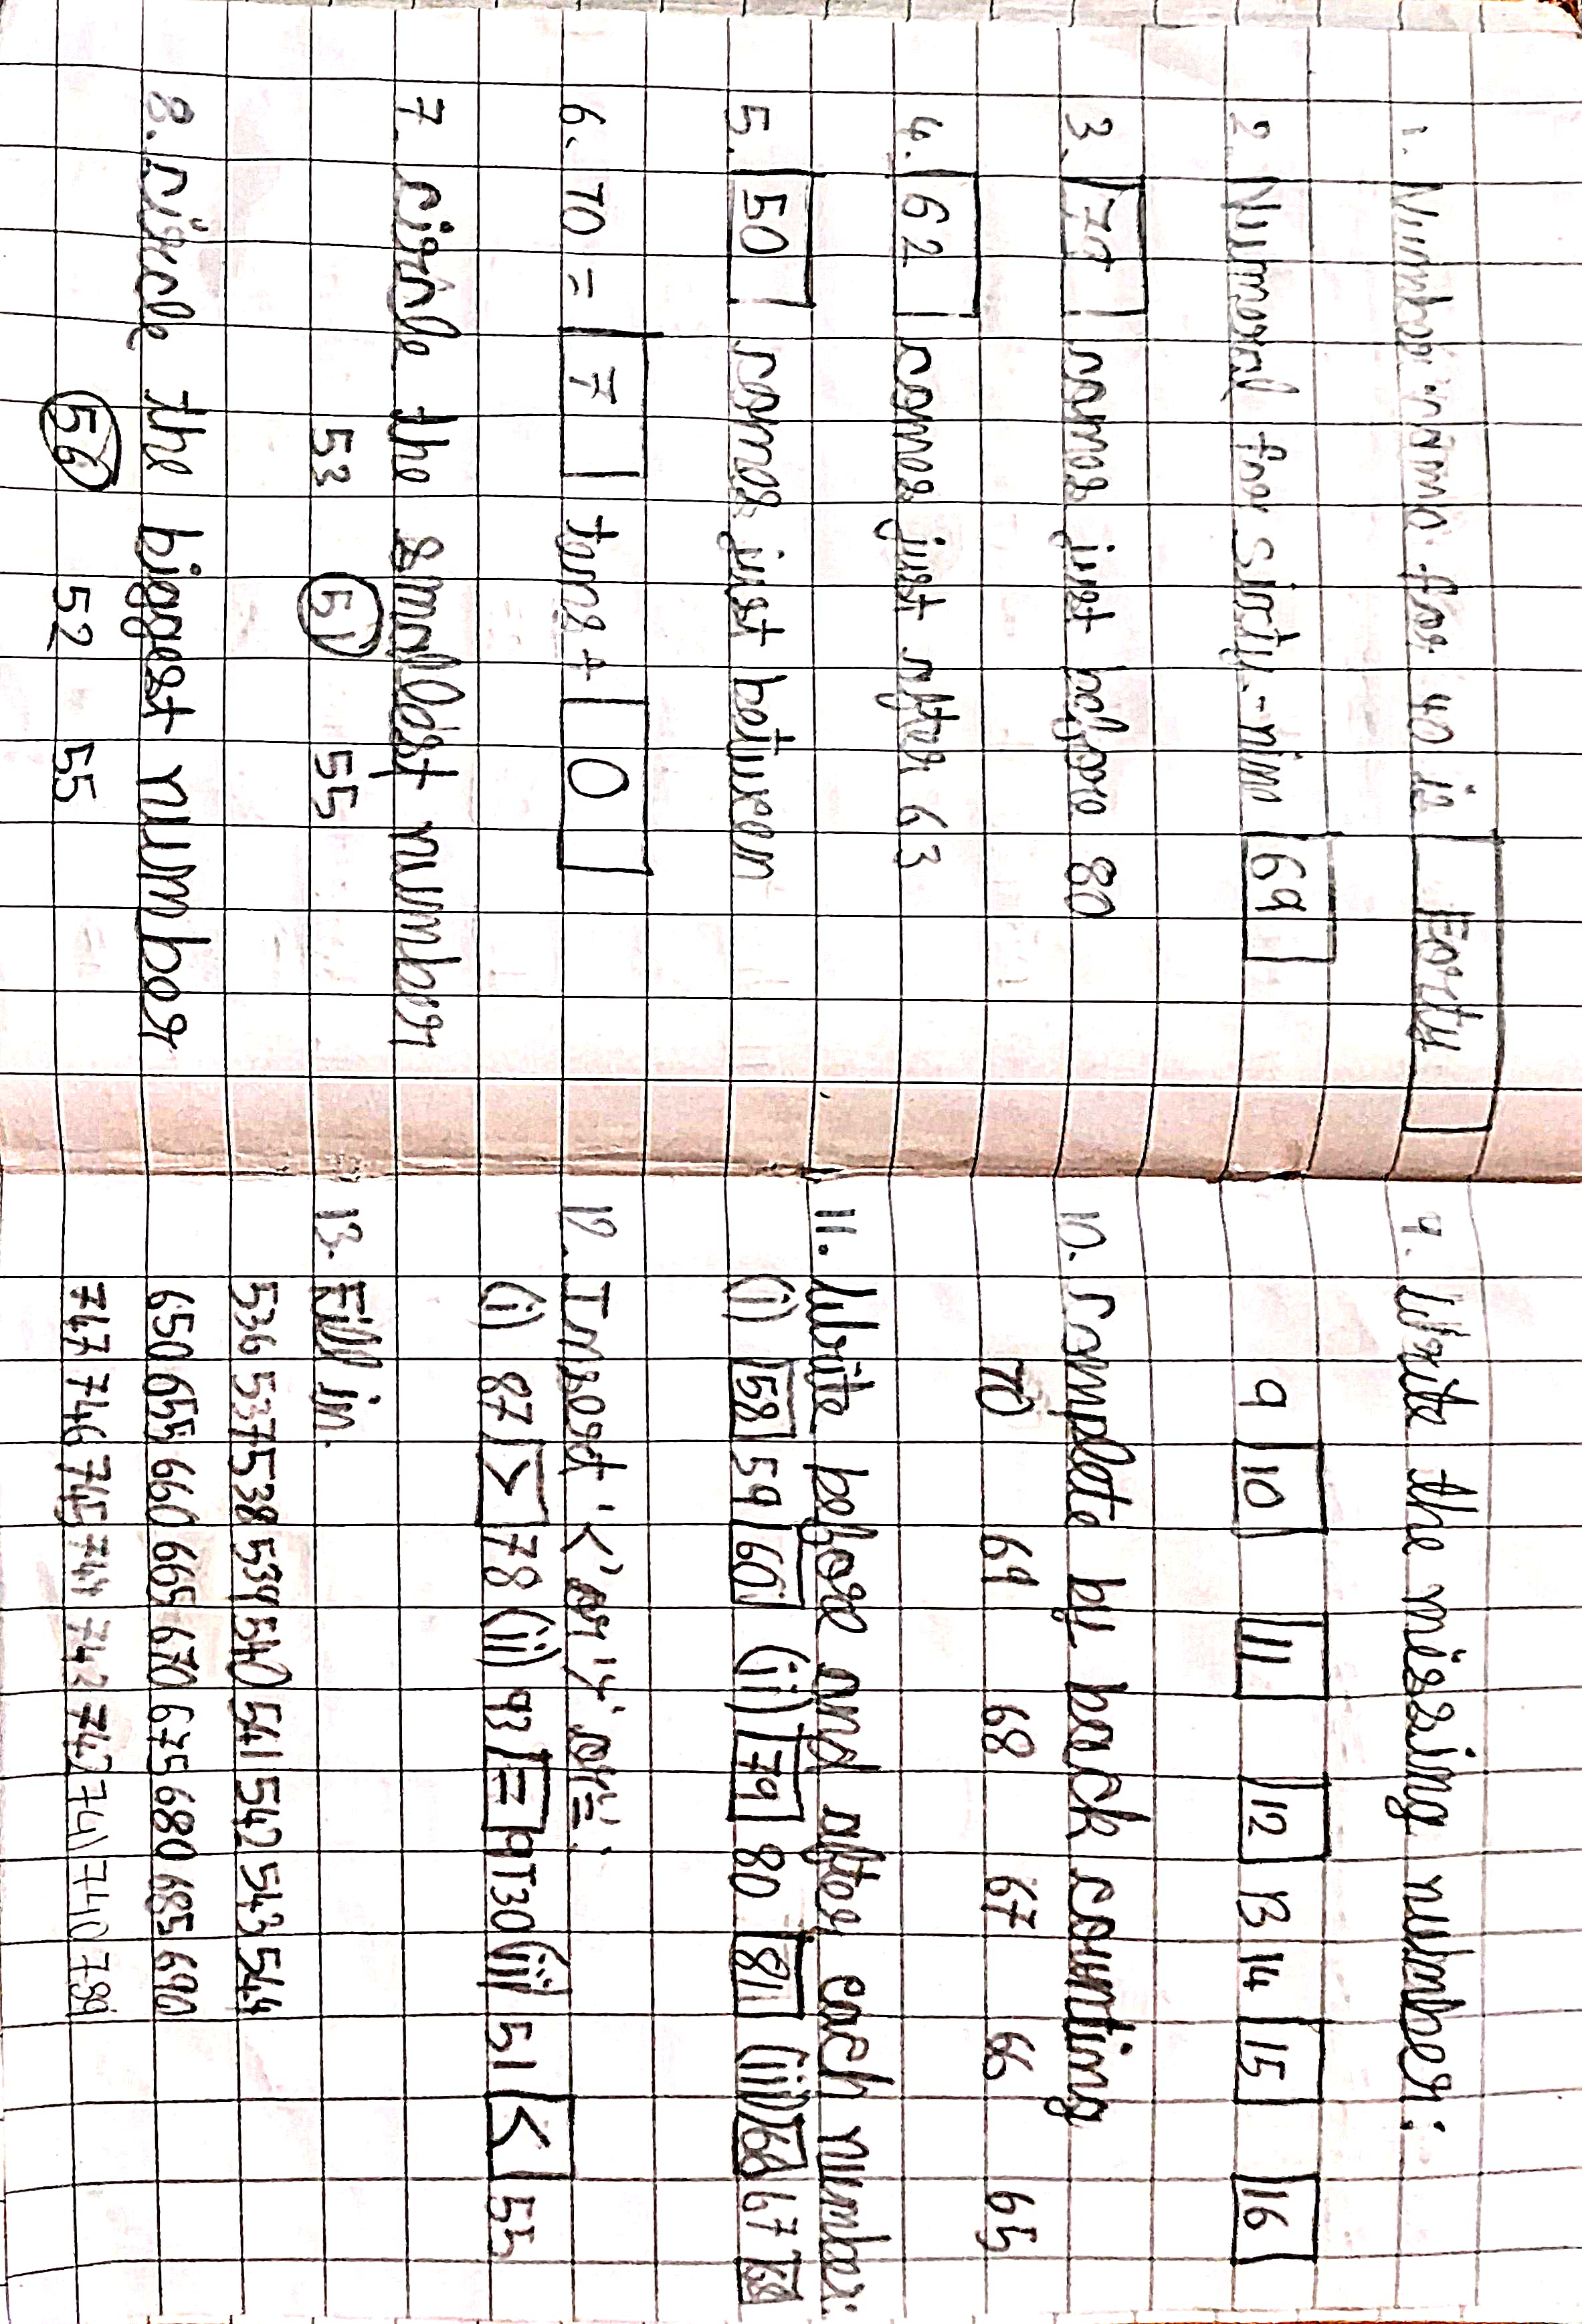 1. Number name for 40 is Forty
2. Numeral for sixty-nine 69
3. 79 comes just before 80
4. 62 comes just after 63
5. 50 comes just between
6. 70 = 7 tens + 0
7. circle the smallest number
53 51 55
8. circle the biggest number
56 52 55
9. Write the missing number:
9 10 11 12 13 14 15 16
10. complete by back counting
70 69 68 67 66 65
11. Write before and after each number:
(i) 58 59 60 (ii) 79 80 81 (iii) 66 67 68
12. Insert '<' or '>' or '=':
(i) 87 > 78 (ii) 93 = 9T30 (iii) 51 < 55
13. Fill in.
536 537 538 539 540 541 542 543 544
650 655 660 665 670 675 680 685 690
747 746 745 744 742 742 741 740 739